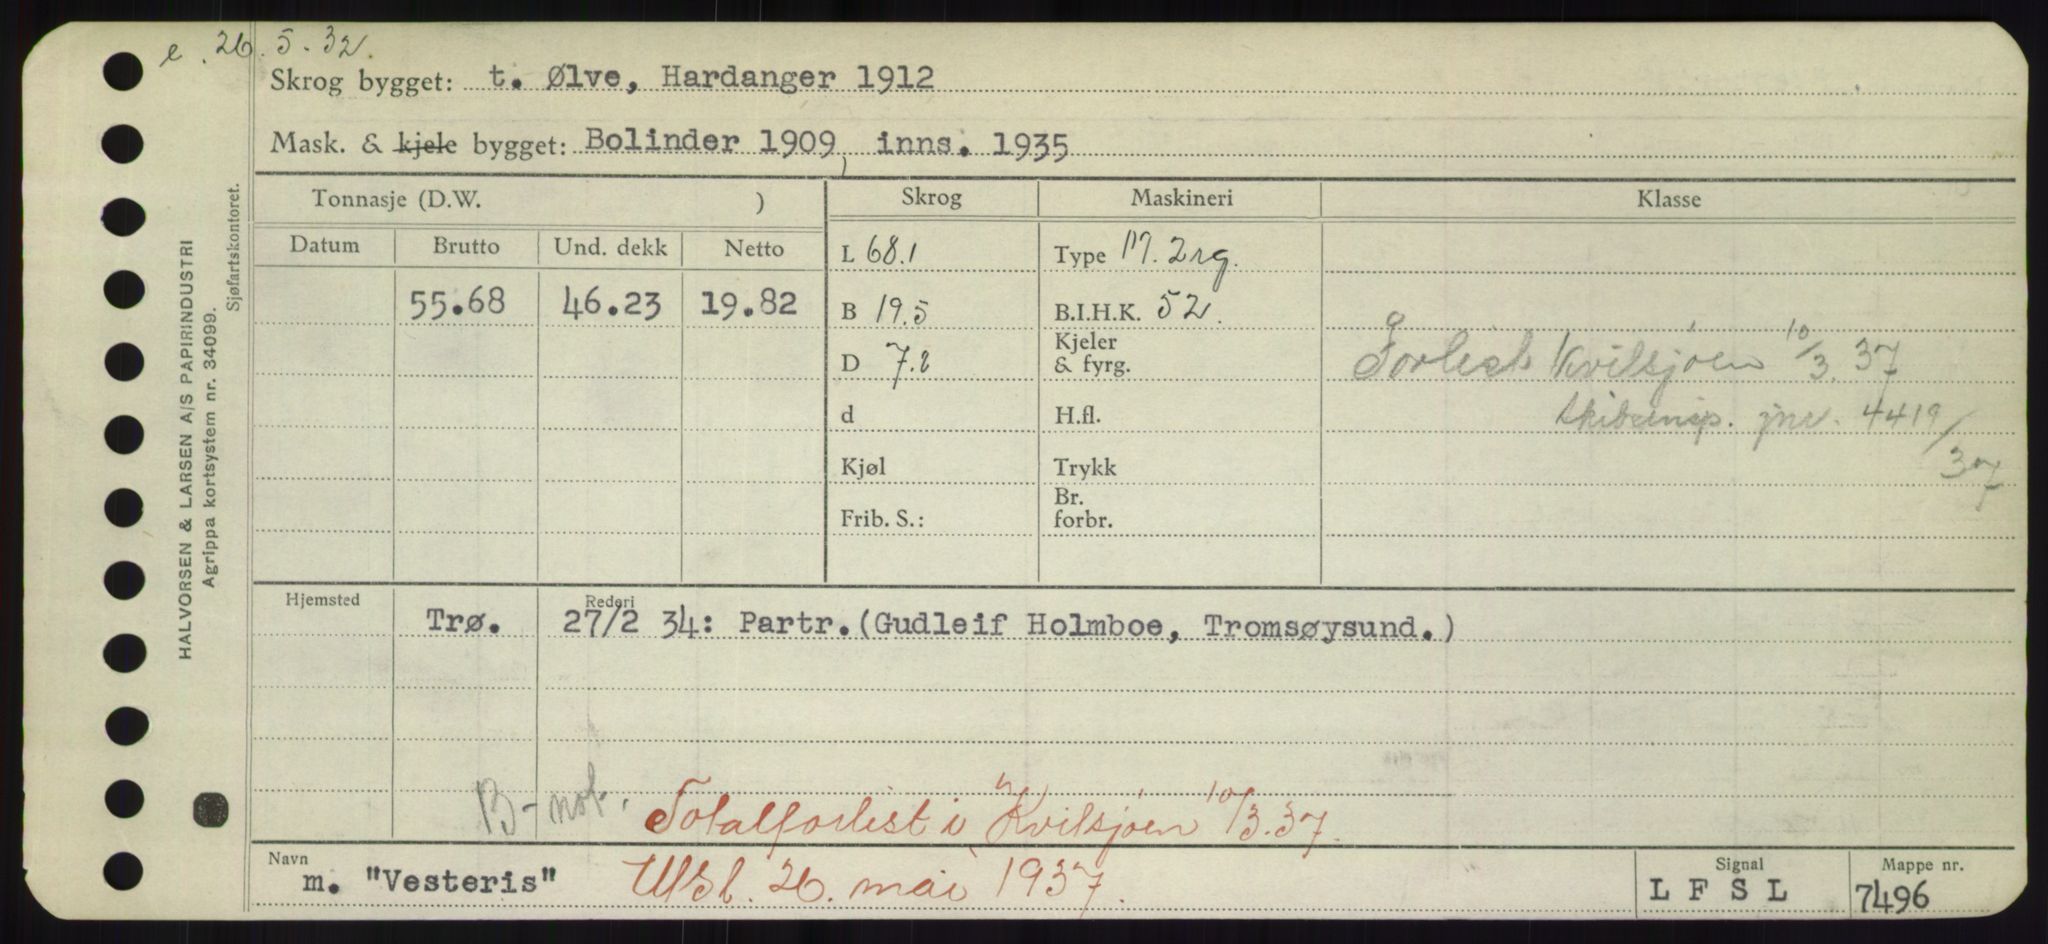 e. 26.5.32.
Skrog bygget: t. Ølve, Hardanger 1912
Mask. & kjele bygget: Bolinder 1909, inns. 1935
Tonnasje (D.W. ) Skrog Maskineri Klasse
Datum Brutto Und. dekk Netto
L 68.1 Type M. 2rg.
55.68 46.23 19.82 B 19.5 B.I.H.K. 52.
D 7.2 Kjeler & fyrg.
Forlist Kvitsjøen 10/3.37
d H.fl.
jnr. 4419/37
Kjøl Trykk
Frib. S.: Br. forbr.
Hjemsted Rederi
Trø. 27/2 34: Partr.(Gudleif Holmboe, Tromsøysund.)
B-not. Totalforlist i Kvitsjøen 10/3.37.
Navn Signal Mappe nr.
m. "Vesteris" Utsl. 26. mai 1937. L F S L 7496
HALVORSEN & LARSEN A/S PAPIRINDUSTRI
Agrippa kortsystem nr. 34099.
Sjøfartskontoret.